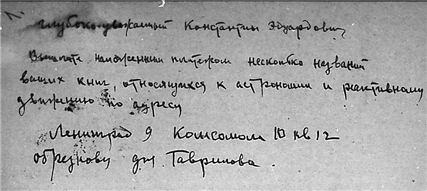 глубокоуважаемый Константин Эдуардович
Вышлите наложенным платежом несколько названий
ваших книг, относящихся к астрономии и реактивному
движению по адресу
Ленинград 9 Комсомола 10 кв 12
Обрезкову для Гаврилова.